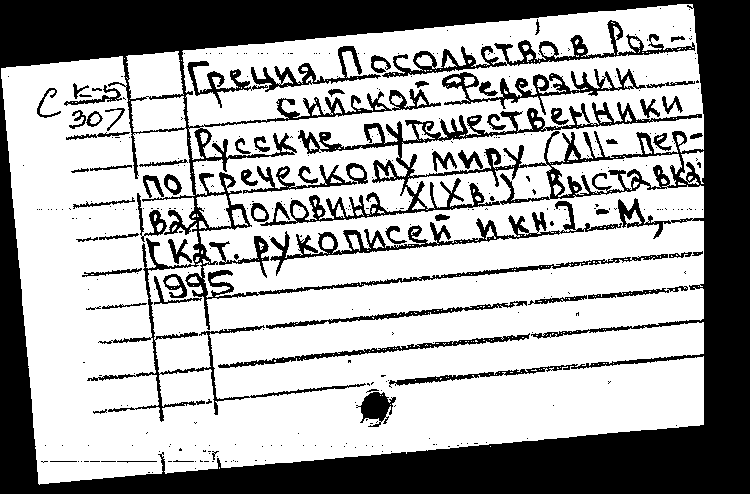 Греция. Посольство в Рос-
С К-5
307
сийской Федерации
Русские путешественники
по греческому миру (XII- пер-
вая половина XIXв.): Выставка:
[Кат. рукописей и кн.].-М.,
1995